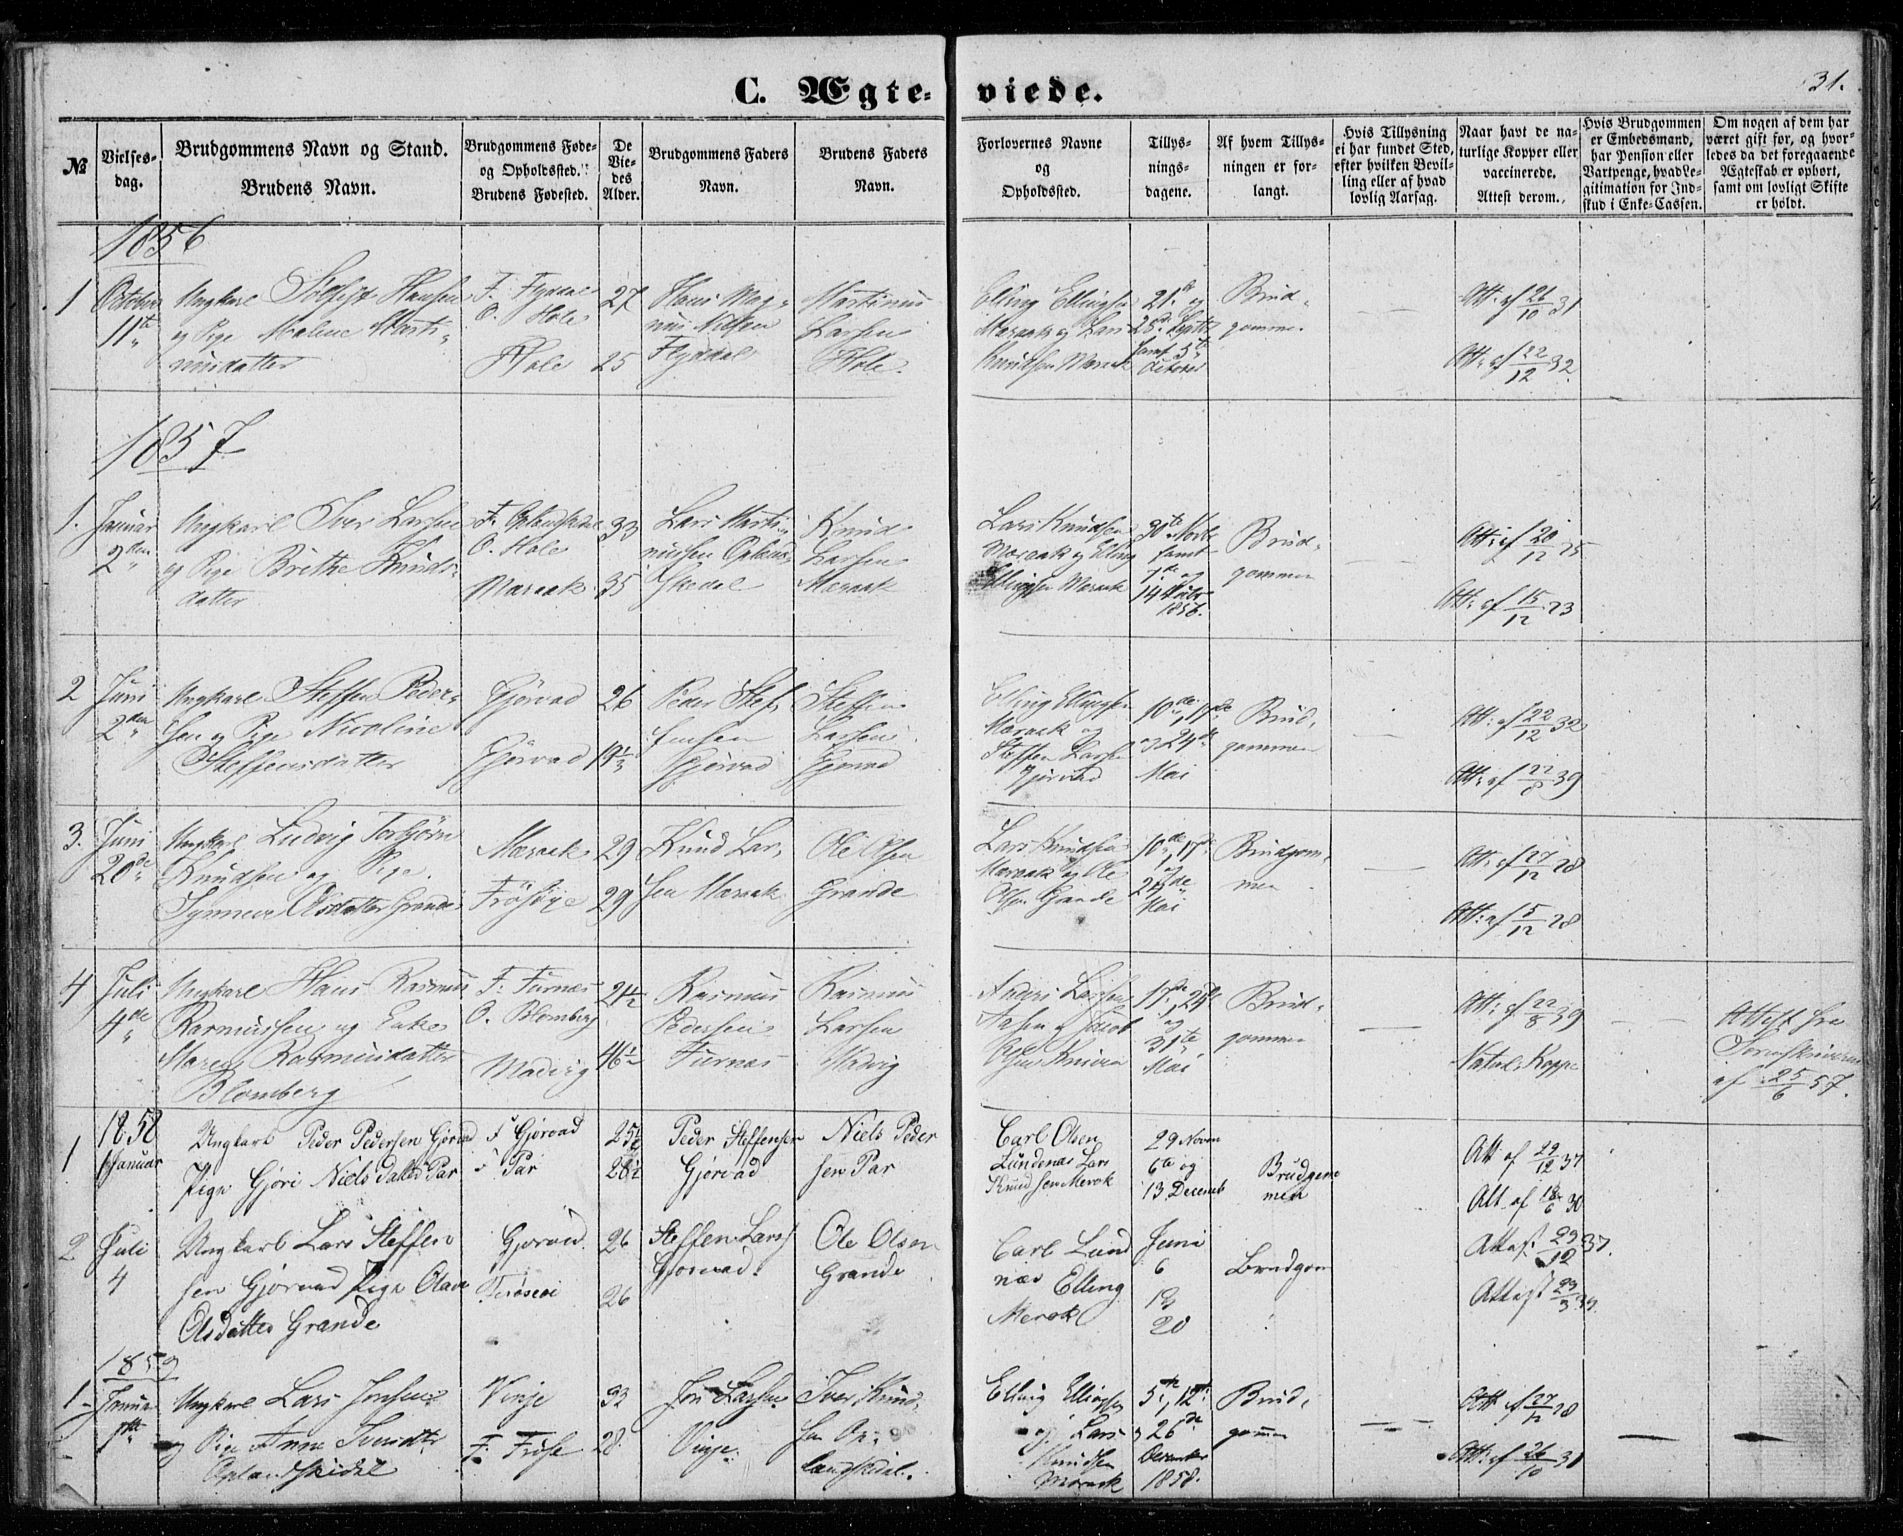 31.
C. Ægte- viede.
№
Vielses-
dag.
Brudgommens Navn og Stand.
Brudens Navn.
Brudgommens Føde-
og Opholdssted.
Brudens Fødested.
De
Vie-
des
Alder.
Brudgommens Faders
Navn.
Brudens Faders
Navn.
Forlovernes Navne
og
Opholdssted.
Tillys-
nings-
dagene.
Af hvem Tillys-
ningen er for-
langt.
Hvis Tillysning
ei har fundet Sted,
efter hvilken Bevil-
ling eller af hvad
lovlig Aarsag.
Naar havt de na-
turlige Kopper eller
vaccinerede.
Attest derom.
Hvis Brudgommen
er Embedsmand,
har Pension eller
Vartpenge, hvad Le-
gitimation for Ind-
skud i Enke-Cassen.
Om nogen af dem har
været gift før, og hvor-
ledes da det foregaaende
Ægteskab er ophørt,
samt om lovligt Skifte
er holdt.
1856
1 October
11te
Ungkarl Hansen
og Pige Malene Marti-
nusdatter
F. Flydal
O. Hole
Hole
27
25
Hans Mag-
nus Nilsen
Flydal
Martinus
Larsen
Hole
Elling Ellingsen
Maraak og Lars
Knudsen Maraak
21de og
28de Septbr
samt 5te
October
Brud-
gommen
Att. af 26/10 31
Att. af 22/12 32.
1857
1. Januar
2den
Ungkarl Iver Larsen
og Pige Brithe Knuds-
datter
F. Oplandskedal
O. Hole
Maraak
33
35
Lars Marti-
nussen Oplend-
skedal
Knud
Larsen
Maraak
Lars Knudsen
Maraak og Elling
Ellingsen Maraak
30te Novbr
samt
7de og
14de Decbr
1856.
Brud-
gommen
Att. af 20/12 25
Att. af 15/12 23
2 Juni
2den
Ungkarl Steffen Peder-
sen og Pige Nicoline
Steffensdatter
Gjørvad
Gjørvad
26
19½
Peder Stef-
fensen
Gjørvad
Steffen
Larsen
Gjørvad
Elling Ellingsen
Maraak og
Steffen Larsen
Gjørvad
10de, 17de
og 24de
Mai
Brud-
gommen
Att. af 22/12 32
Att. af 22/8 39
3. Juni
20de
Ungkarl Ludvig Torbjørn
Knudsen og Pige
Synneve Olsdatter Grande
Maraak
Frøsøye
29
29
Knud Lar-
sen Maraak
Ole Olsen
Grande
Lars Knudsen
Maraak og Ole
Olsen Grande
10de, 17de
og
24de
Mai
Brudgom-
men
Att. af 27/12 28
Att. af 5/12 28
4 Juli
4de
Ungkarl Hans Rasmus
Rasmussen og Enke
Maren Rasmusdatter
Blomberg
F. Furnæs
O. Blomberg
Madvig
21½
46½
Rasmus
Pedersen
Furnæs
Rasmus
Larsen
Madvig
Anders Larsen
17de, 24de
og
31te
Mai
Brud-
gommen
Att. af 22/8 39
Naturl. Kopper
Attest fra
Sorenskriveren
af 25/6 57.
1858
1 Januar
Ungkarl Peder Pedersen Gjørvad
Pige Gjøri Nielsdatter Par
F Gjørvad
F Par
25½
28½
Peder Steffensen
Gjørvad
Niels Peder
sen Par
Carl Olsen
Lundenæs Lars
Knudsen Merok
29 Novem
6te og
13 Decemb
Brudgom
men
Att af 29/12 37
Att af 18/6 30
2 Juli
4
Ungkarl Lars Steffen
sen Gjørvad Pige Olave
Olsdatter Grande
Gjørvad
Frøseøi
26
26
Steffen Lars
Gjørvad.
Ole Olsen
Grande
Carl Lund
næs Elling
Merok
Juni
6
13
20
Brudgom
Attest 29/12 37.
Attest 23/3 35.
1859
1 Januar
1ste
Ungkarl Lars Jonsen
og Pige Anne Iversdtr
Oplandskedal
Vinje
F. Frøse
32
28
Jon Larsen
Vinge
Iver Knud-
sen Op-
landskedal.
Elling Ellingsen
og Lars
Knudsen
Maraak
5te, 12te
og 26de
December
1858.
Brud-
gommen
Att. af 27/12 28
Att. af 26/10 31